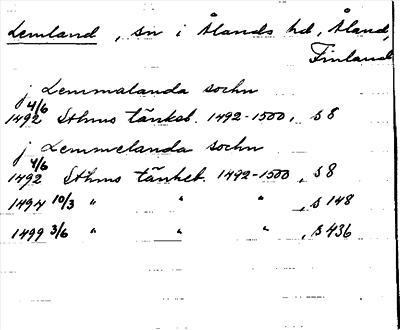 Lemland, sn i Ålands hd, Åland,
Finland
j Lemmalanda sochn
1492 4/6 Sthms tänkeb. 1492-1500, s 8
j Lemmelanda sochn
1492 4/6 Sthms tänkeb. 1492-1500, s 8
1494 10/3 " " " , s 148
1499 3/6 " " " , s 436